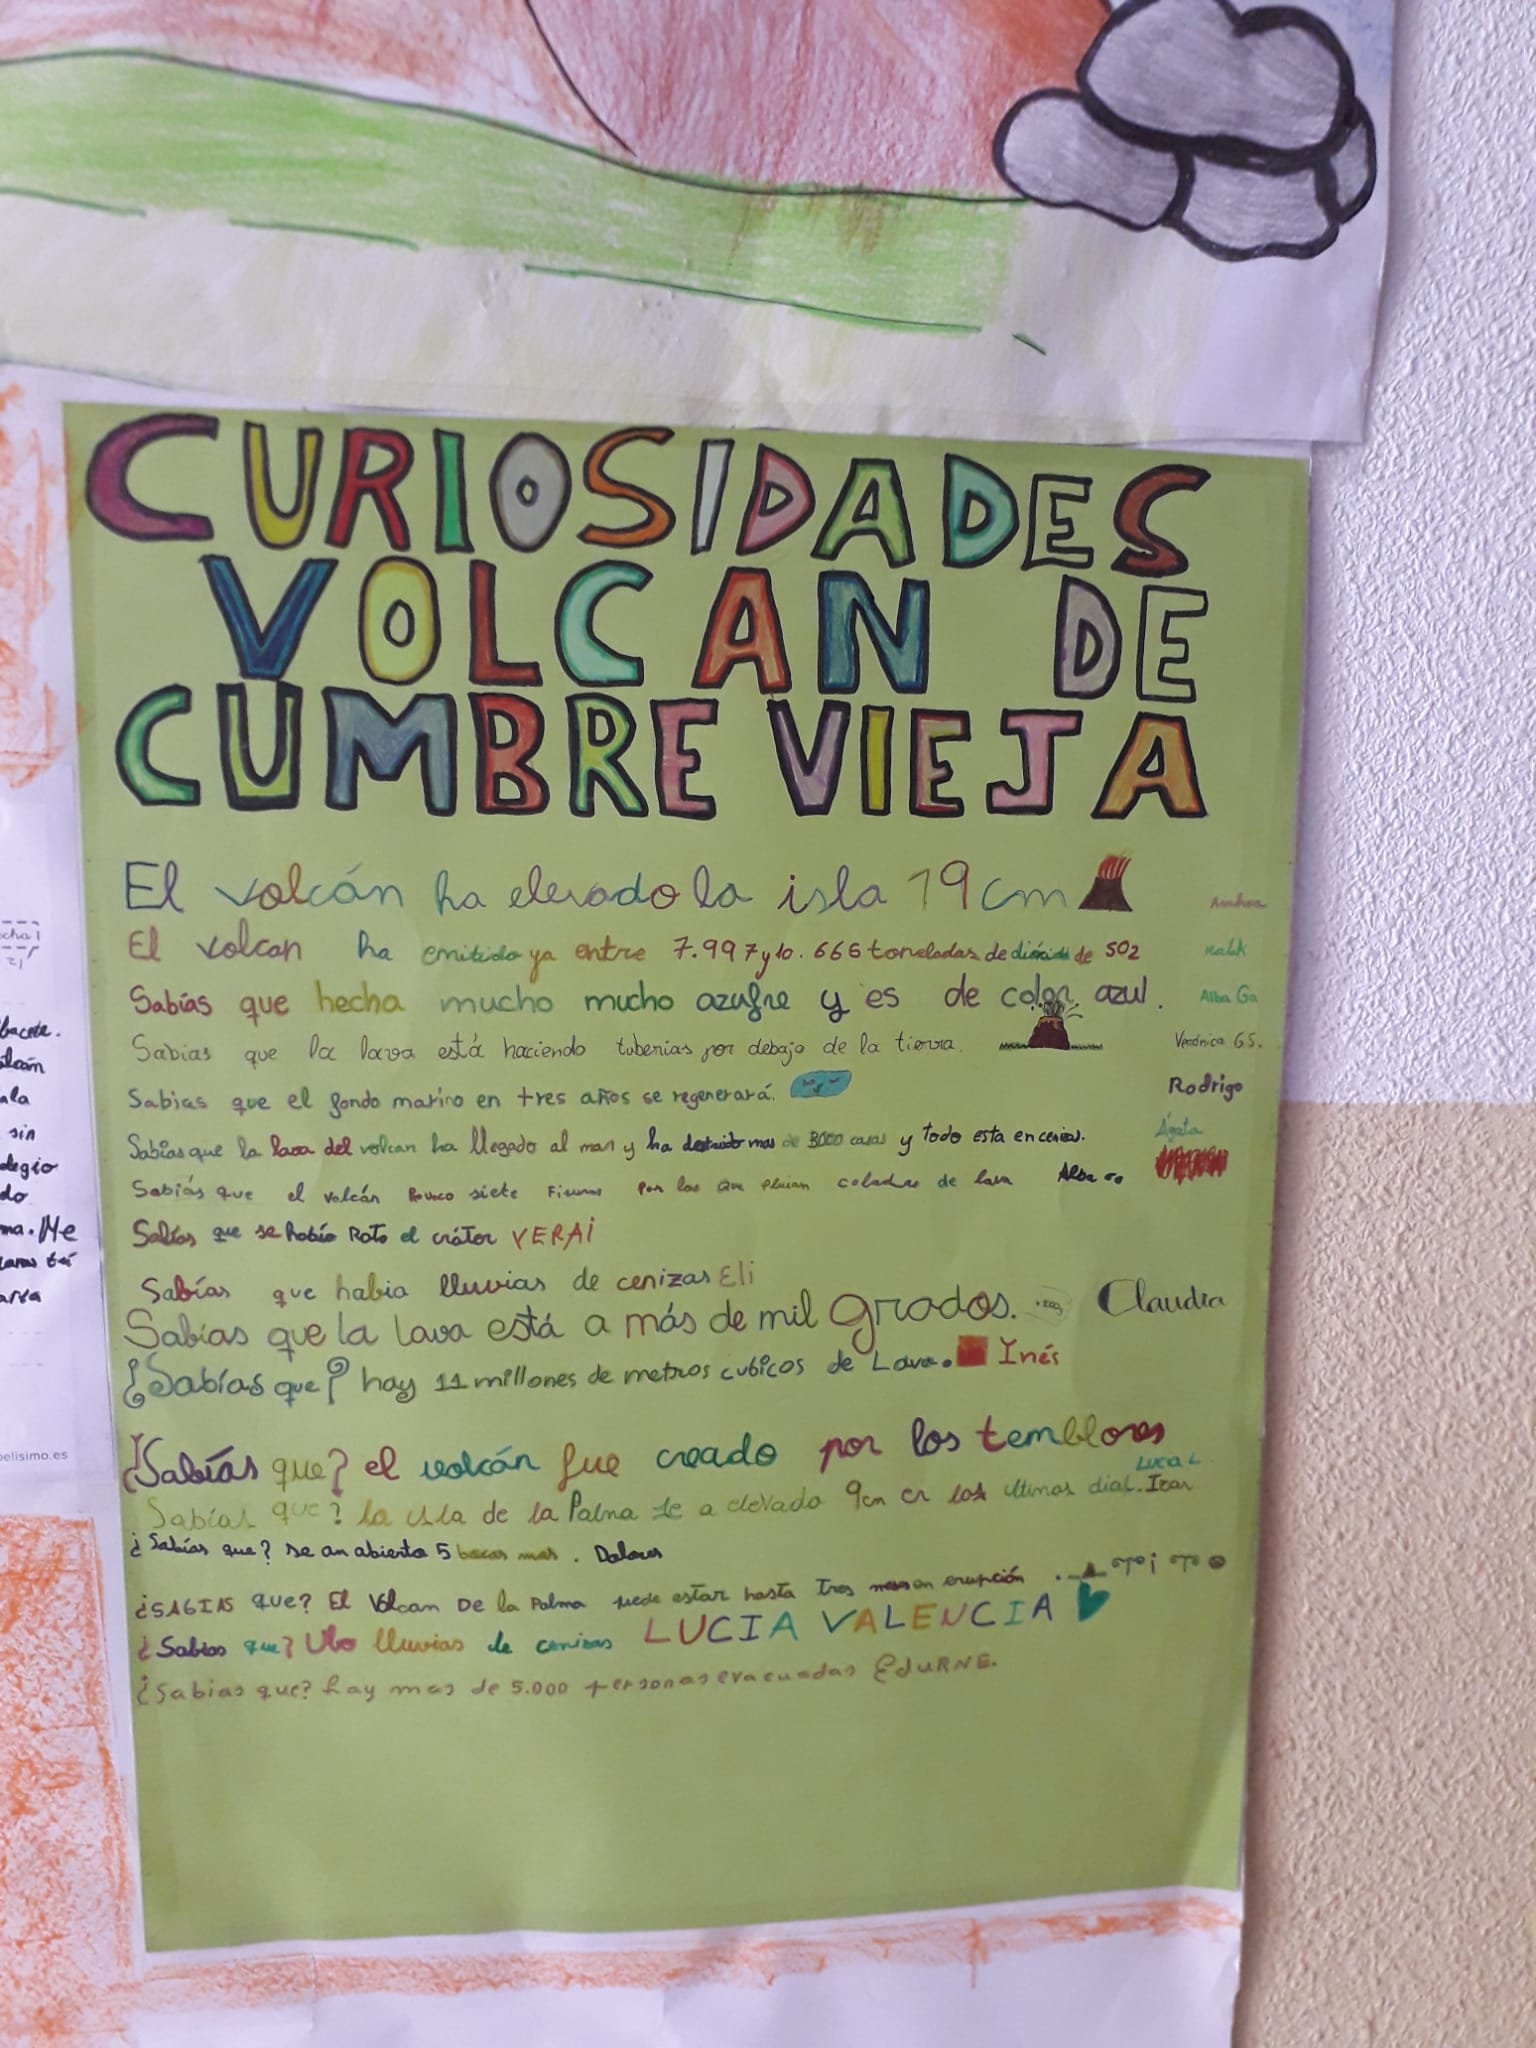 CURIOSIDADES
VOLCAN DE
CUMBRE VIEJA
El volcán ha elevado la isla 19 cm
El volcan ha emitido ya entre 7.997 y 10.665 toneladas de dióxido de SO2
Malik
Sabías que hecha mucho mucho azufre y es de color azul.
Alba Ga
Sabias que la lava está haciendo tuberías por debajo de la tierra.
Verónica GS.
Sabias que el fondo marino en tres años se regenerará.
Rodrigo
Sabias que la lava del volcan ha llegado al mar y ha destruido mas de 3000 casas y todo esta en cenizas.
Ágata
Sabías que el volcán siete por las que coladas de lava Alba
Sabías que se había Roto el cráter YERAI
Sabías que habia lluvias de cenizas Eli
Sabías que la lava está a más de mil grados.
Claudia
¿Sabías que? hay 11 millones de metros cubicos de Lava. Inés
¿Sabías que? el volcán fue creado por los temblores
Lucia L
Sabías que? la isla de la Palma se a elevado 9cm en los ultimos dias. Izan
¿Sabías que? se an abierto 5 bocas mas. Dolores
¿SABIAS que? El Volcan De la Palma puede estar hasta tres en erupción
¿Sabias que? Ubo lluvias de cenizas LUCIA VALENCIA
¿Sabias que? hay mas de 5.000 personas evacuadas EdURNE.
sin
ala
do
ma. Me
belisimo.es